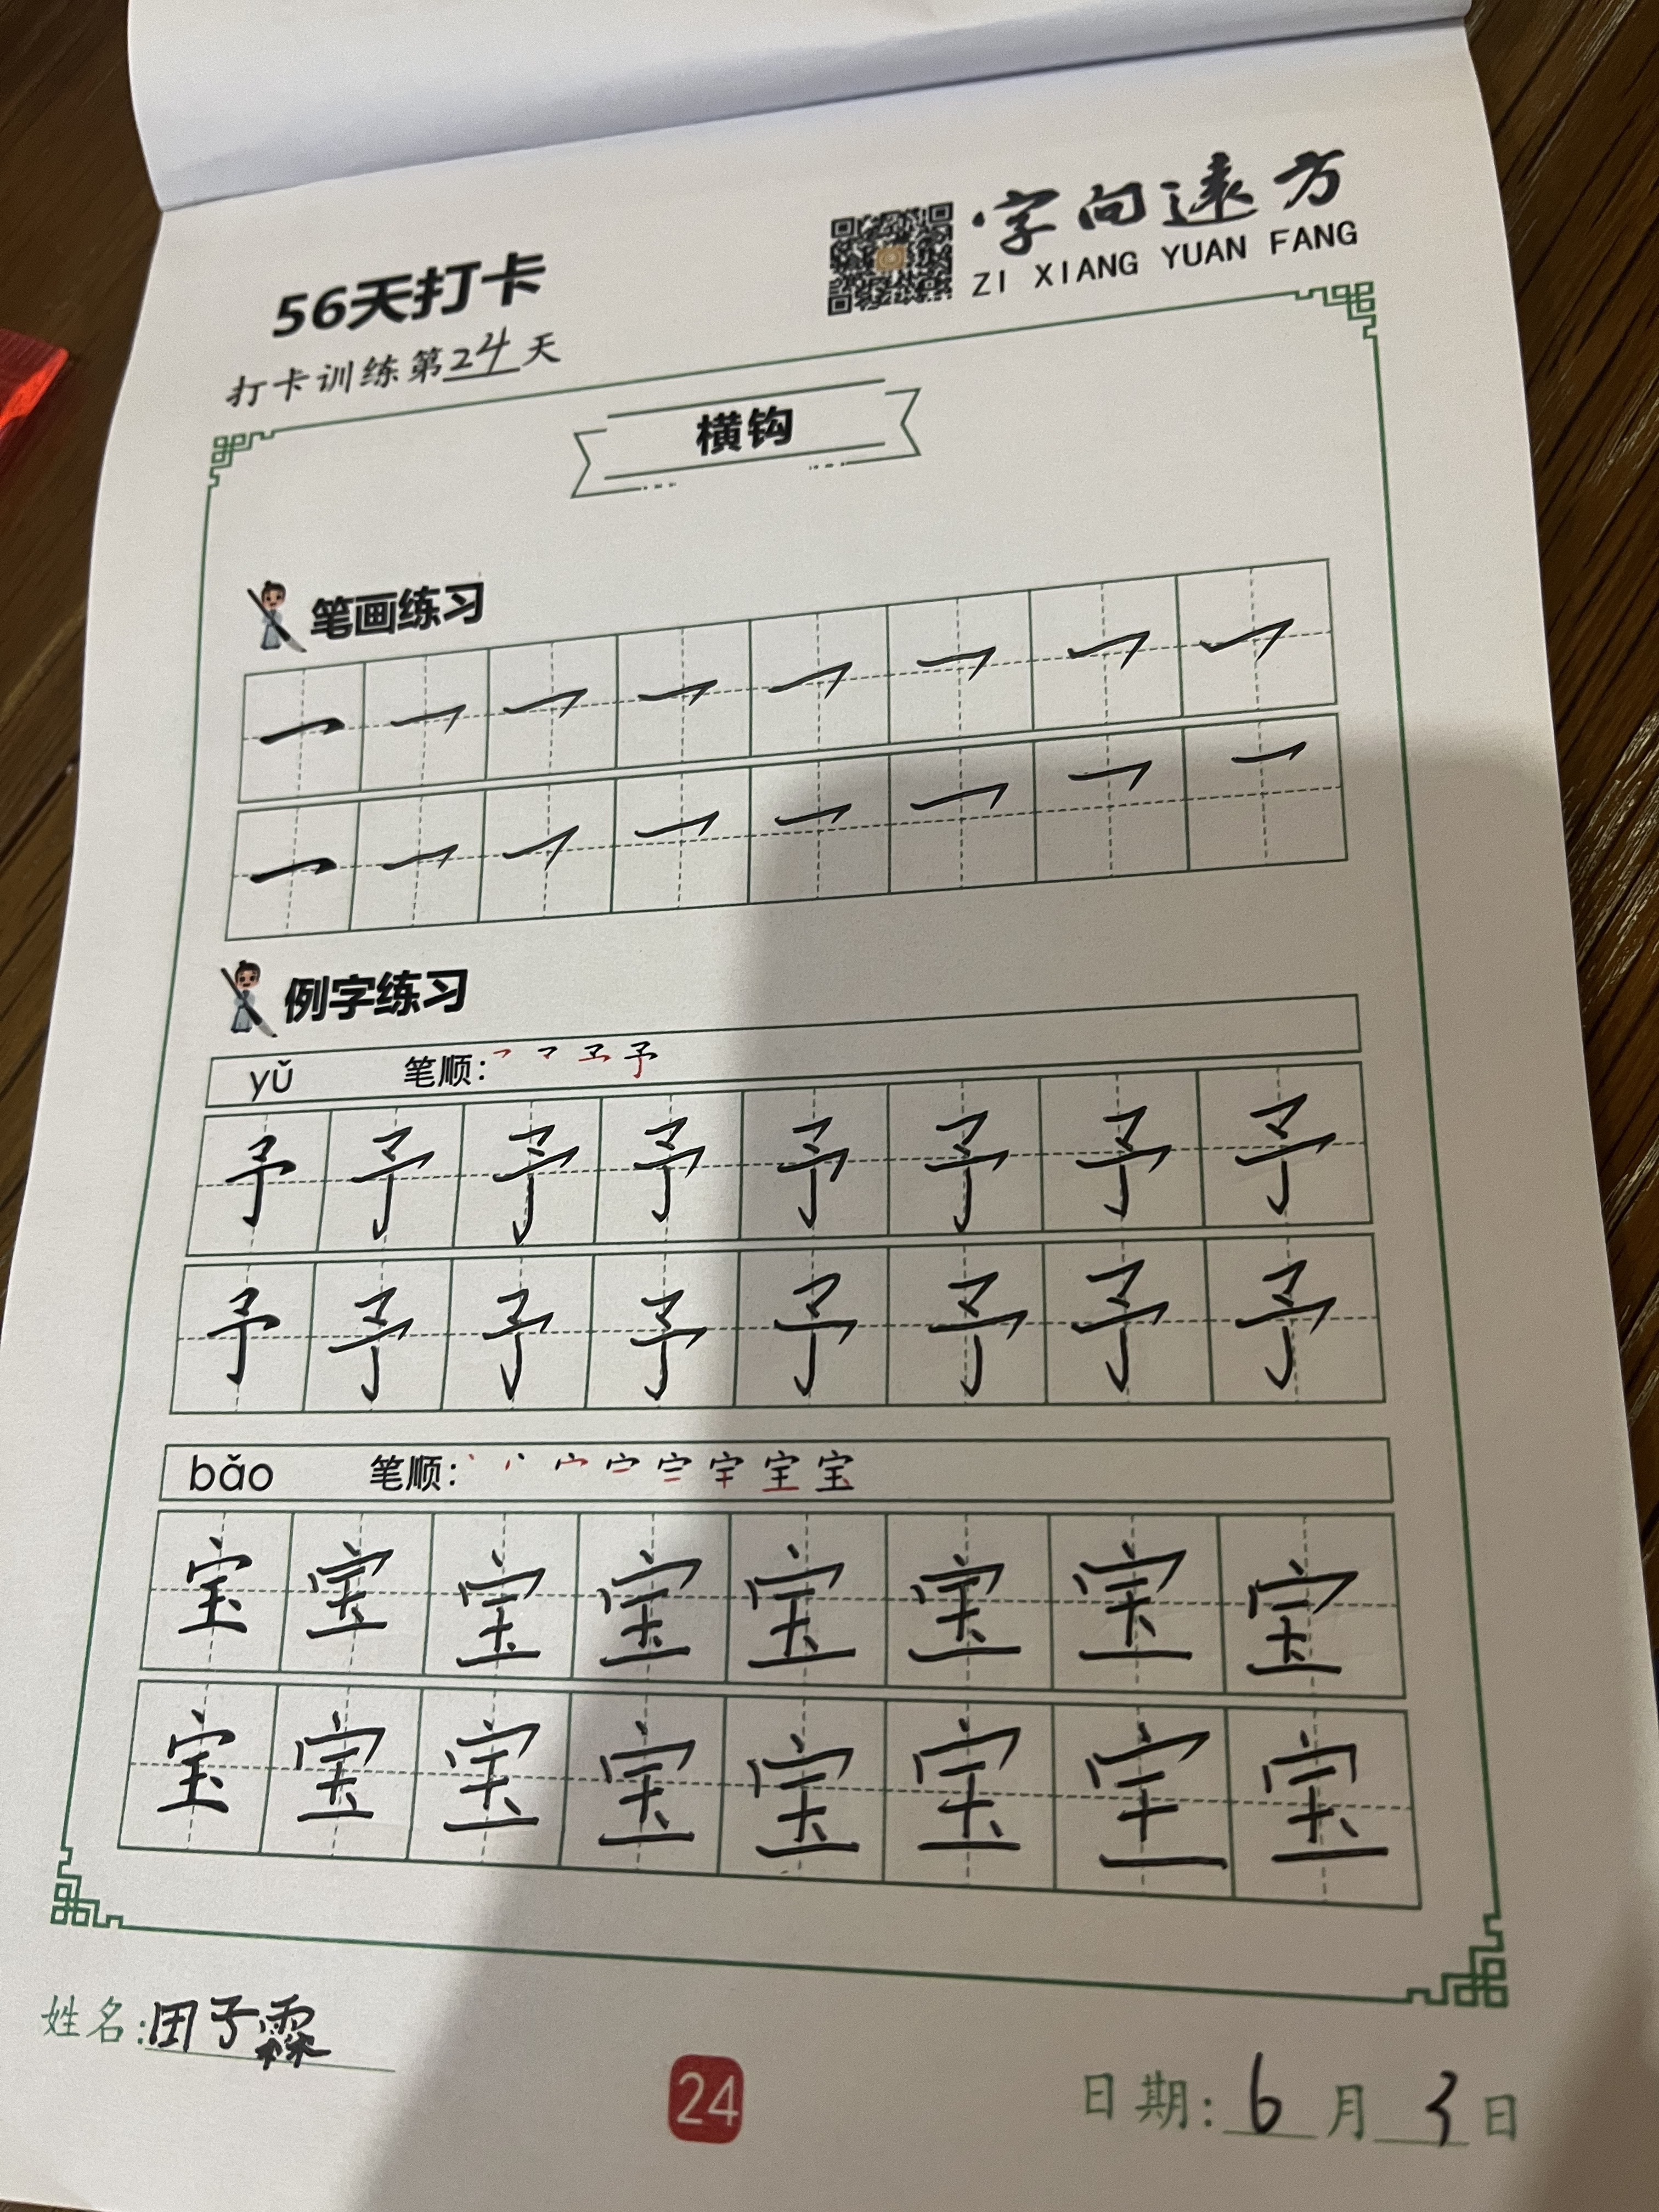 字向遠方
ZI XIANG YUAN FANG
56天打卡
打卡训练第24天
横钩
笔画练习
例字练习
yǔ 笔顺: 予
予 予 予 予 予 予 予 予
予 予 予 予 予 予 予 予
bǎo 笔顺: 宝
宝 宝 宝 宝 宝 宝 宝 宝
宝 宝 宝 宝 宝 宝 宝 宝
姓名:田子霖
24
日期:6月3日